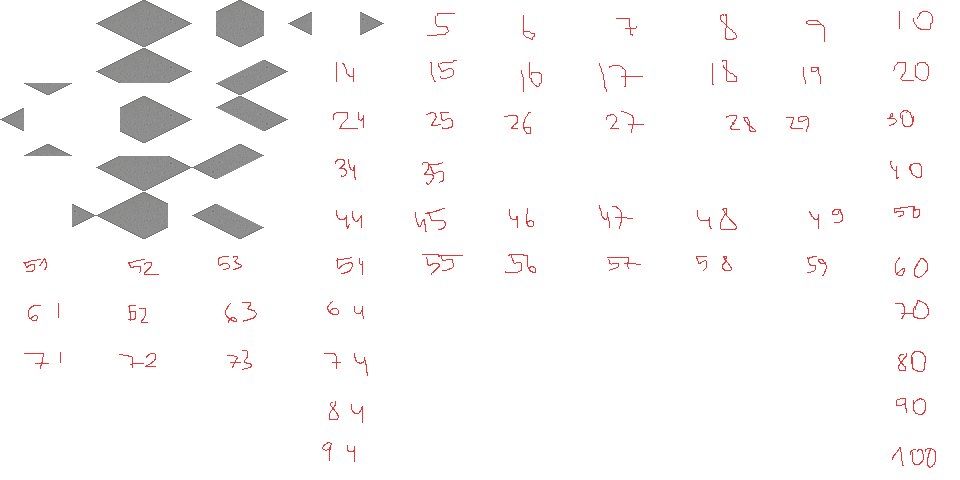 5 6 7 8 9 10
14 15 16 17 18 19 20
24 25 26 27 28 29 30
34 35 40
44 45 46 47 48 49 50
51 52 53 54 55 56 57 58 59 60
61 62 63 64 70
71 72 73 74 80
84 90
94 100